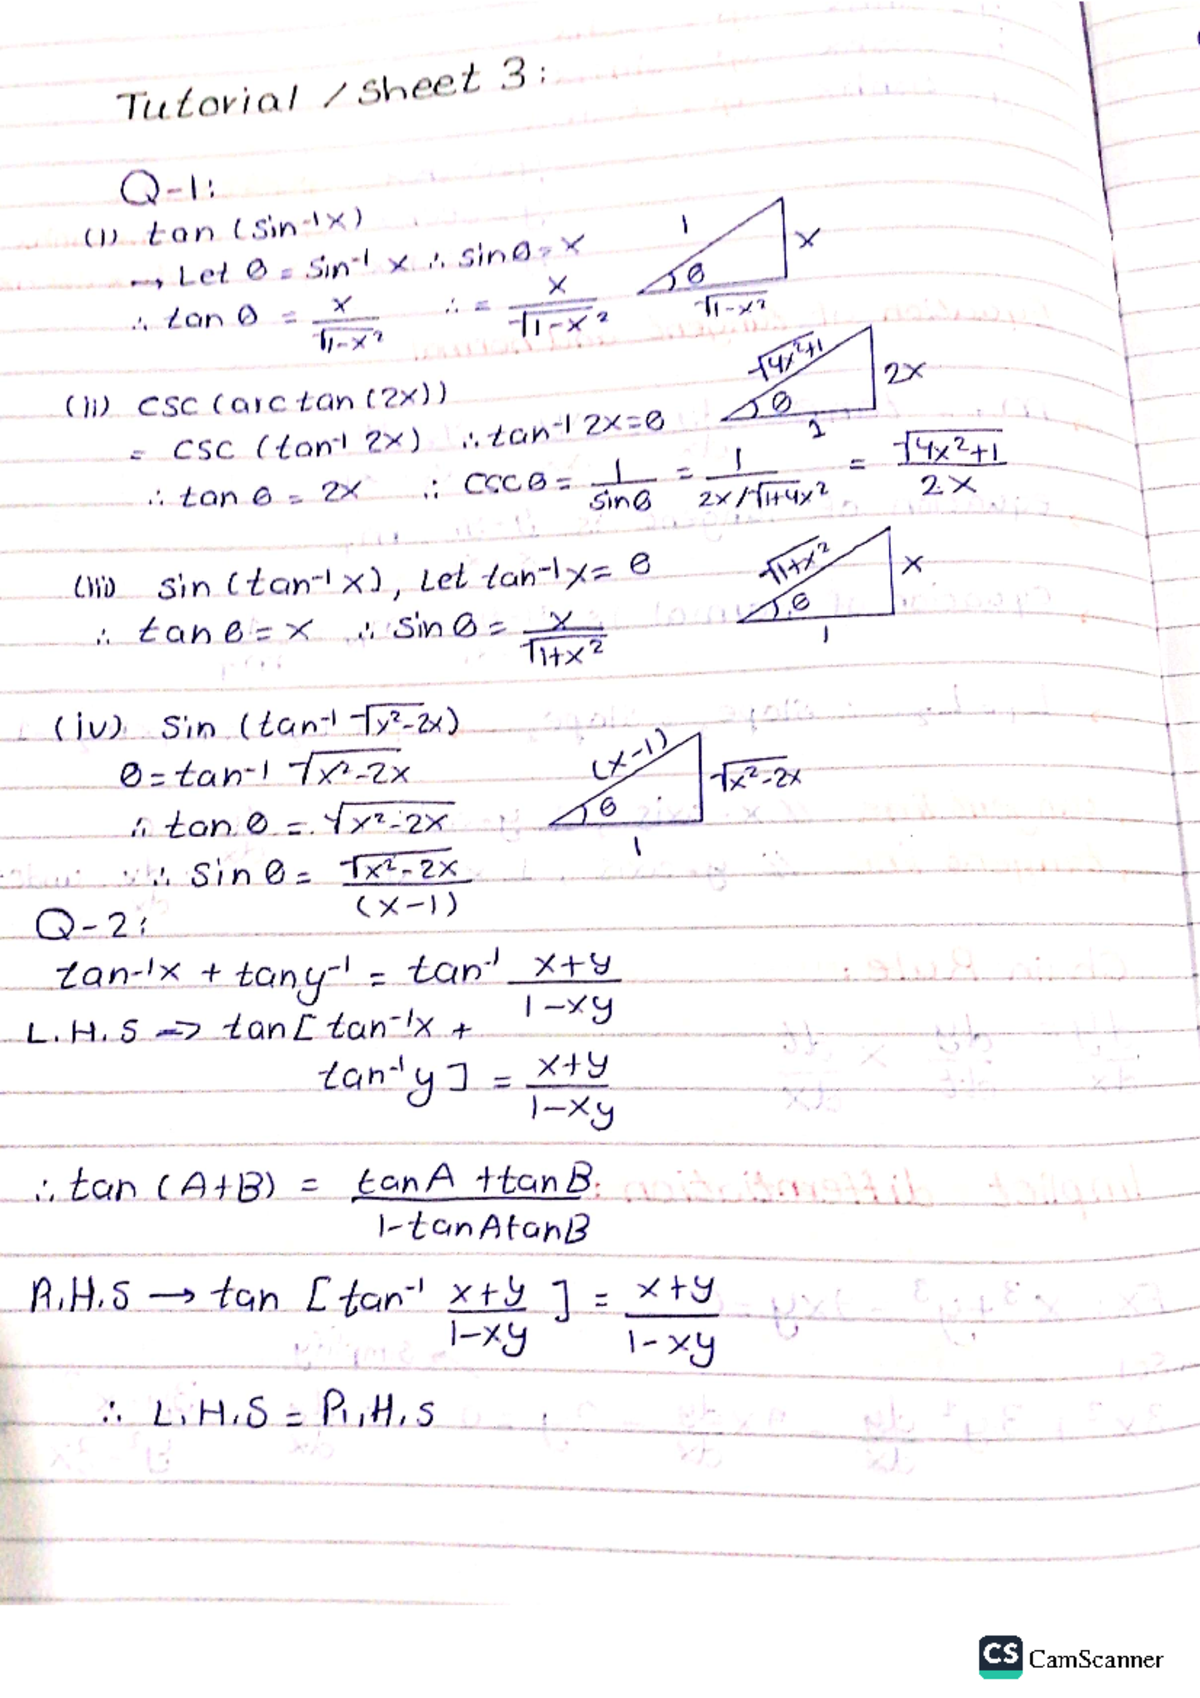 Tutorial / Sheet 3 :
Q-1:
(i) tan (sin⁻¹x)
→ Let θ = sin⁻¹ x ∴ sinθ = x
∴ tan θ = x/√1-x² ∴ = x/√1-x²
1
x
θ
√1-x²
(ii) csc (arc tan (2x))
= csc (tan⁻¹ 2x) ∴ tan⁻¹ 2x = θ
∴ tan θ = 2x ∴ cscθ = 1/sinθ = 1/2x/√1+4x² = √4x²+1/2x
√4x²+1
2x
θ
1
(iii) sin (tan⁻¹ x), Let tan⁻¹x = θ
∴ tan θ = x ∴ sin θ = x/√1+x²
√1+x²
x
θ
1
(iv) Sin (tan⁻¹ √x²-2x)
θ = tan⁻¹ √x²-2x
∴ tan θ = √x²-2x
∴ sin θ = √x²-2x/(x-1)
(x-1)
√x²-2x
θ
1
Q-2:
tan⁻¹x + tan y⁻¹ = tan⁻¹ x+y/1-xy
L.H.S => tan [ tan⁻¹x +
tan⁻¹ y ] = x+y/1-xy
∴ tan (A+B) = tan A + tan B/1-tanAtanB
R.H.S → tan [ tan⁻¹ x+y/1-xy ] = x+y/1-xy
∴ L.H.S = R.H.S
CS CamScanner